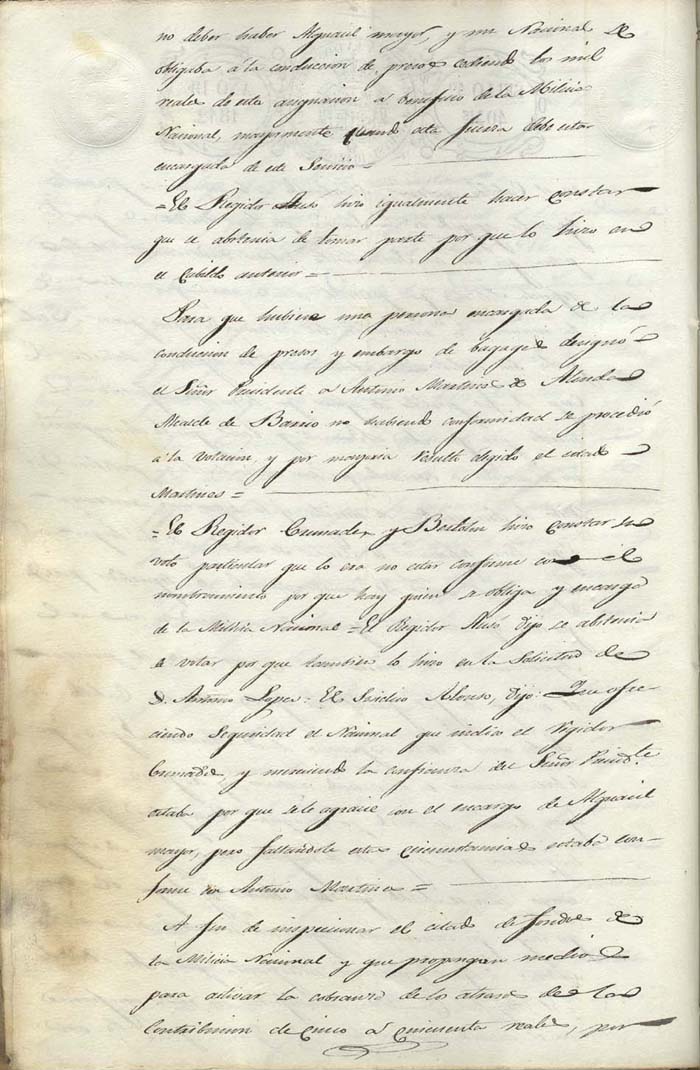 no deber haber Alguacil mayor, y un Nacional se
obligaba á la conduccion de presos cediendo los mil
reales de esta asignacion a beneficio de la Milicia
Nacional, mayormente cuando esta fuerza debe estar
encargada de este Servicio =
= El Regidor hizo igualmente hacer constar
que se abstenia de tomar parte por que lo hizo en
el Cabildo anterior =
Para que hubiere una persona encargada de la
conducion de presos y embargo de bagages designó
el Señor Presidente a Antonio Martinez de
Alcalde de Barrio no habiendo conformidad se procedió
á la votacion, y por mayoria resultó elegido el citado
Martines =
= El Regidor y hizo constar su
voto particular que lo era no estar conforme con el
nombramiento por que hay quien se obliga y encarga
de la Milicia Nacional = El Regidor dijo se abstenia
de votar por que tambien lo hizo en la Solicitud de
D. Antonio Lopez = El Sindico Alonso, dijo: Que ofre-
ciendo Seguridad el Nacional que indica el Regidor
y mereciendo la confianza del Señor Presid.te
estaba por que se le agracie con el encargo de Alguacil
mayor, pero faltandole estas circunstancias estaba con-
forme en Antonio Martinez =
A fin de inspecionar el estado de fondos de
la Milicia Nacional y que propongan medios
para activar la cobranza de los atrasos de la
Contribucion de Cinco a Cincuenta reales, por